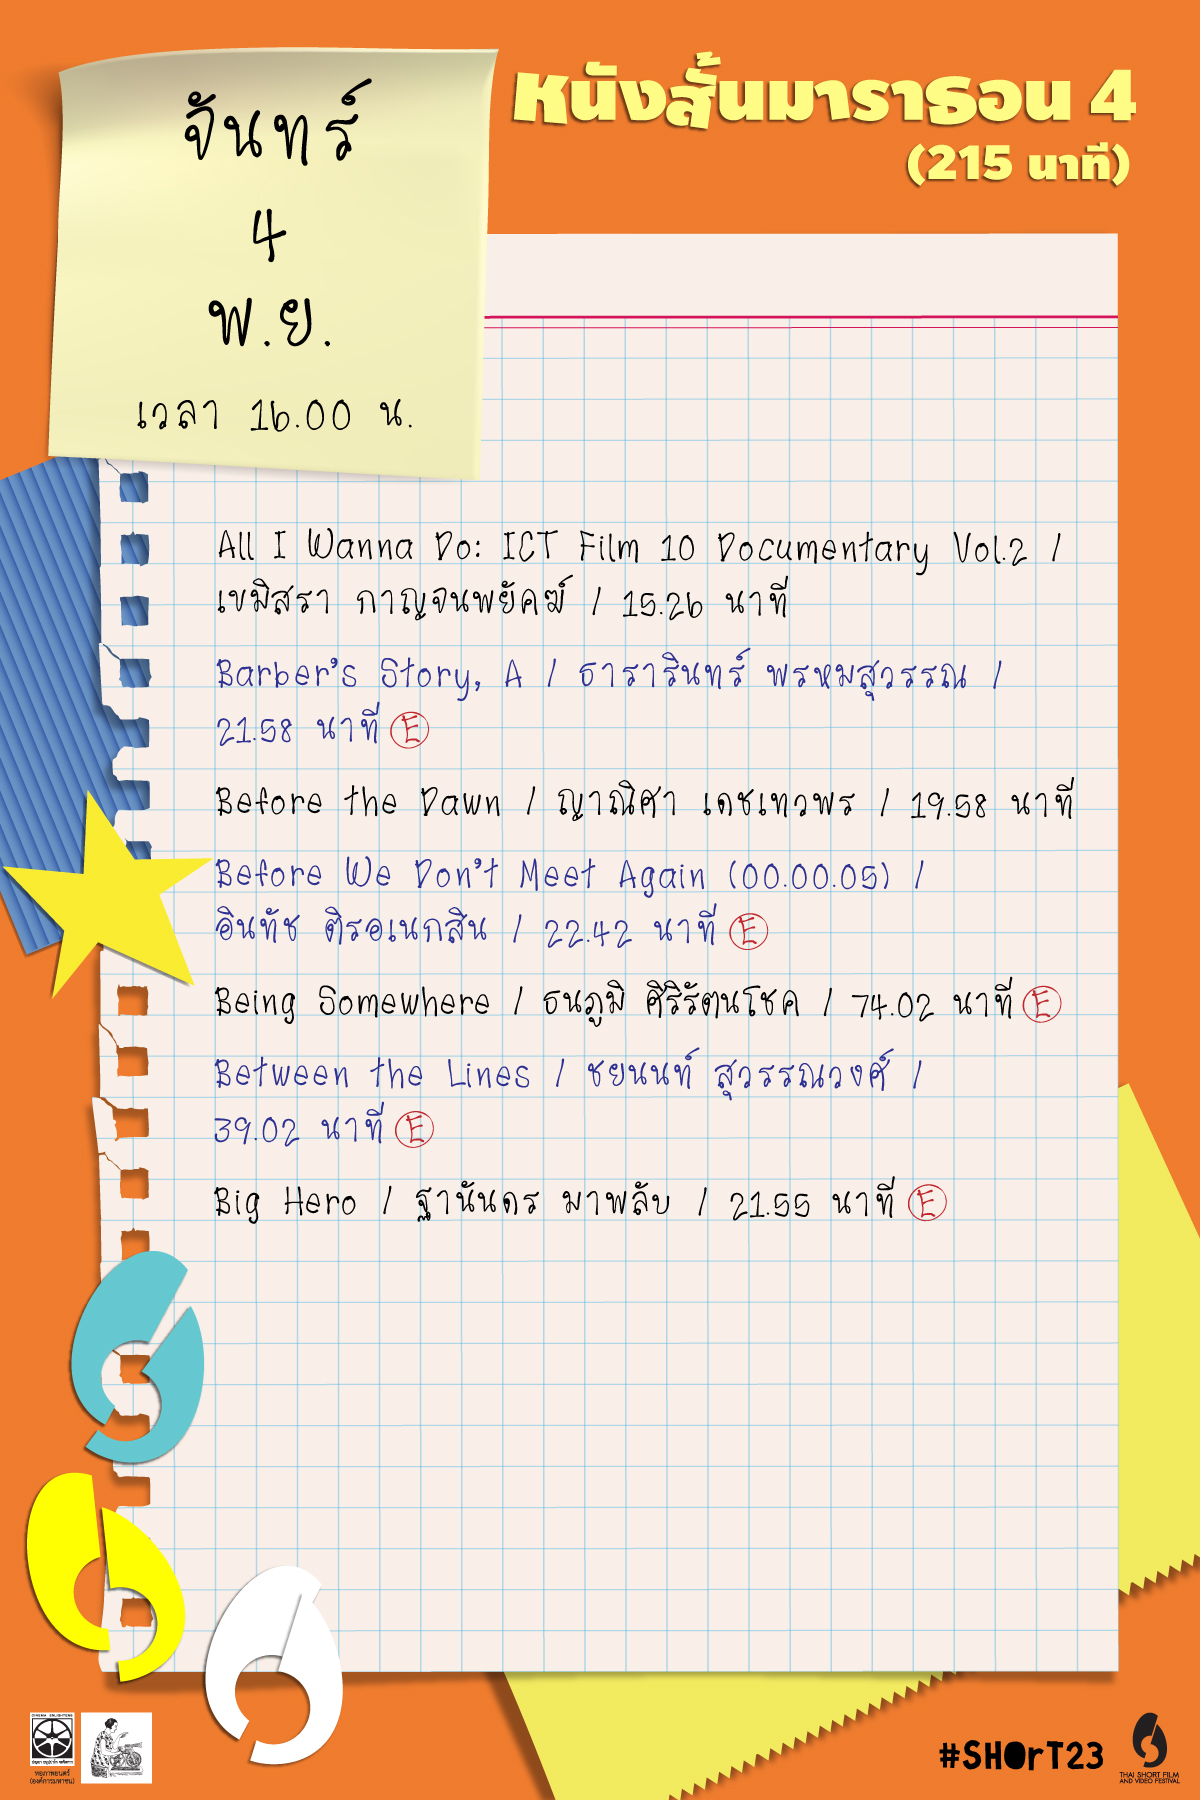 จันทร์
4
พ.ย.
เวลา 16.00 น.
หนังสั้นมาราธอน 4
(215 นาที)
All I Wanna Do: ICT Film 10 Documentary Vol.2 /
เขมิสรา กาญจนพยัคฆ์ / 15.26 นาที
Barber's Story, A / ธารารินทร์ พรหมสุวรรณ /
21.58 นาที E
Before the Dawn / ญาณิศา เดชเทวพร / 19.58 นาที
Before We Don't Meet Again (00.00.05) /
อินทัช ติรอเนกสิน / 22.42 นาที E
Being Somewhere / ธนภูมิ ศิริรัตนโชค / 74.02 นาที E
Between the Lines / ชยนนท์ สุวรรณวงศ์ /
39.02 นาที E
Big Hero / ฐานันดร มาพลับ / 21.55 นาที E
CINEMA ENLIGHTENS
หอภาพยนตร์
(องค์การมหาชน)
#SHOrT23
THAI SHORT FILM
AND VIDEO FESTIVAL